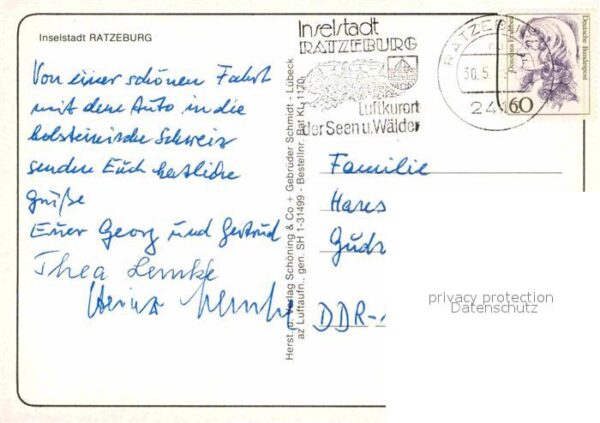 Inselstadt RATZEBURG
Von einer schönen Fahrt
mit dem Auto in die
holsteinische Schweiz
senden Euch herzliche
Grüße
Euer Georg und Gertrud
Thea Lemke
Heinz Lemke
Herst. u. Verlag Schöning & Co + Gebrüder Schmidt · Lübeck
az Luftaufn., gen. SH 1-31499 - Bestellnr. Rat KL 1170
Inselstadt
RATZEBURG
Luftkurort
der Seen u. Wälder
RATZEBURG
30.5.
2418
Dorothea Erxleben
Deutsche Bundespost
60
Familie
Hares
Guds
DDR-
privacy protection
Datenschutz